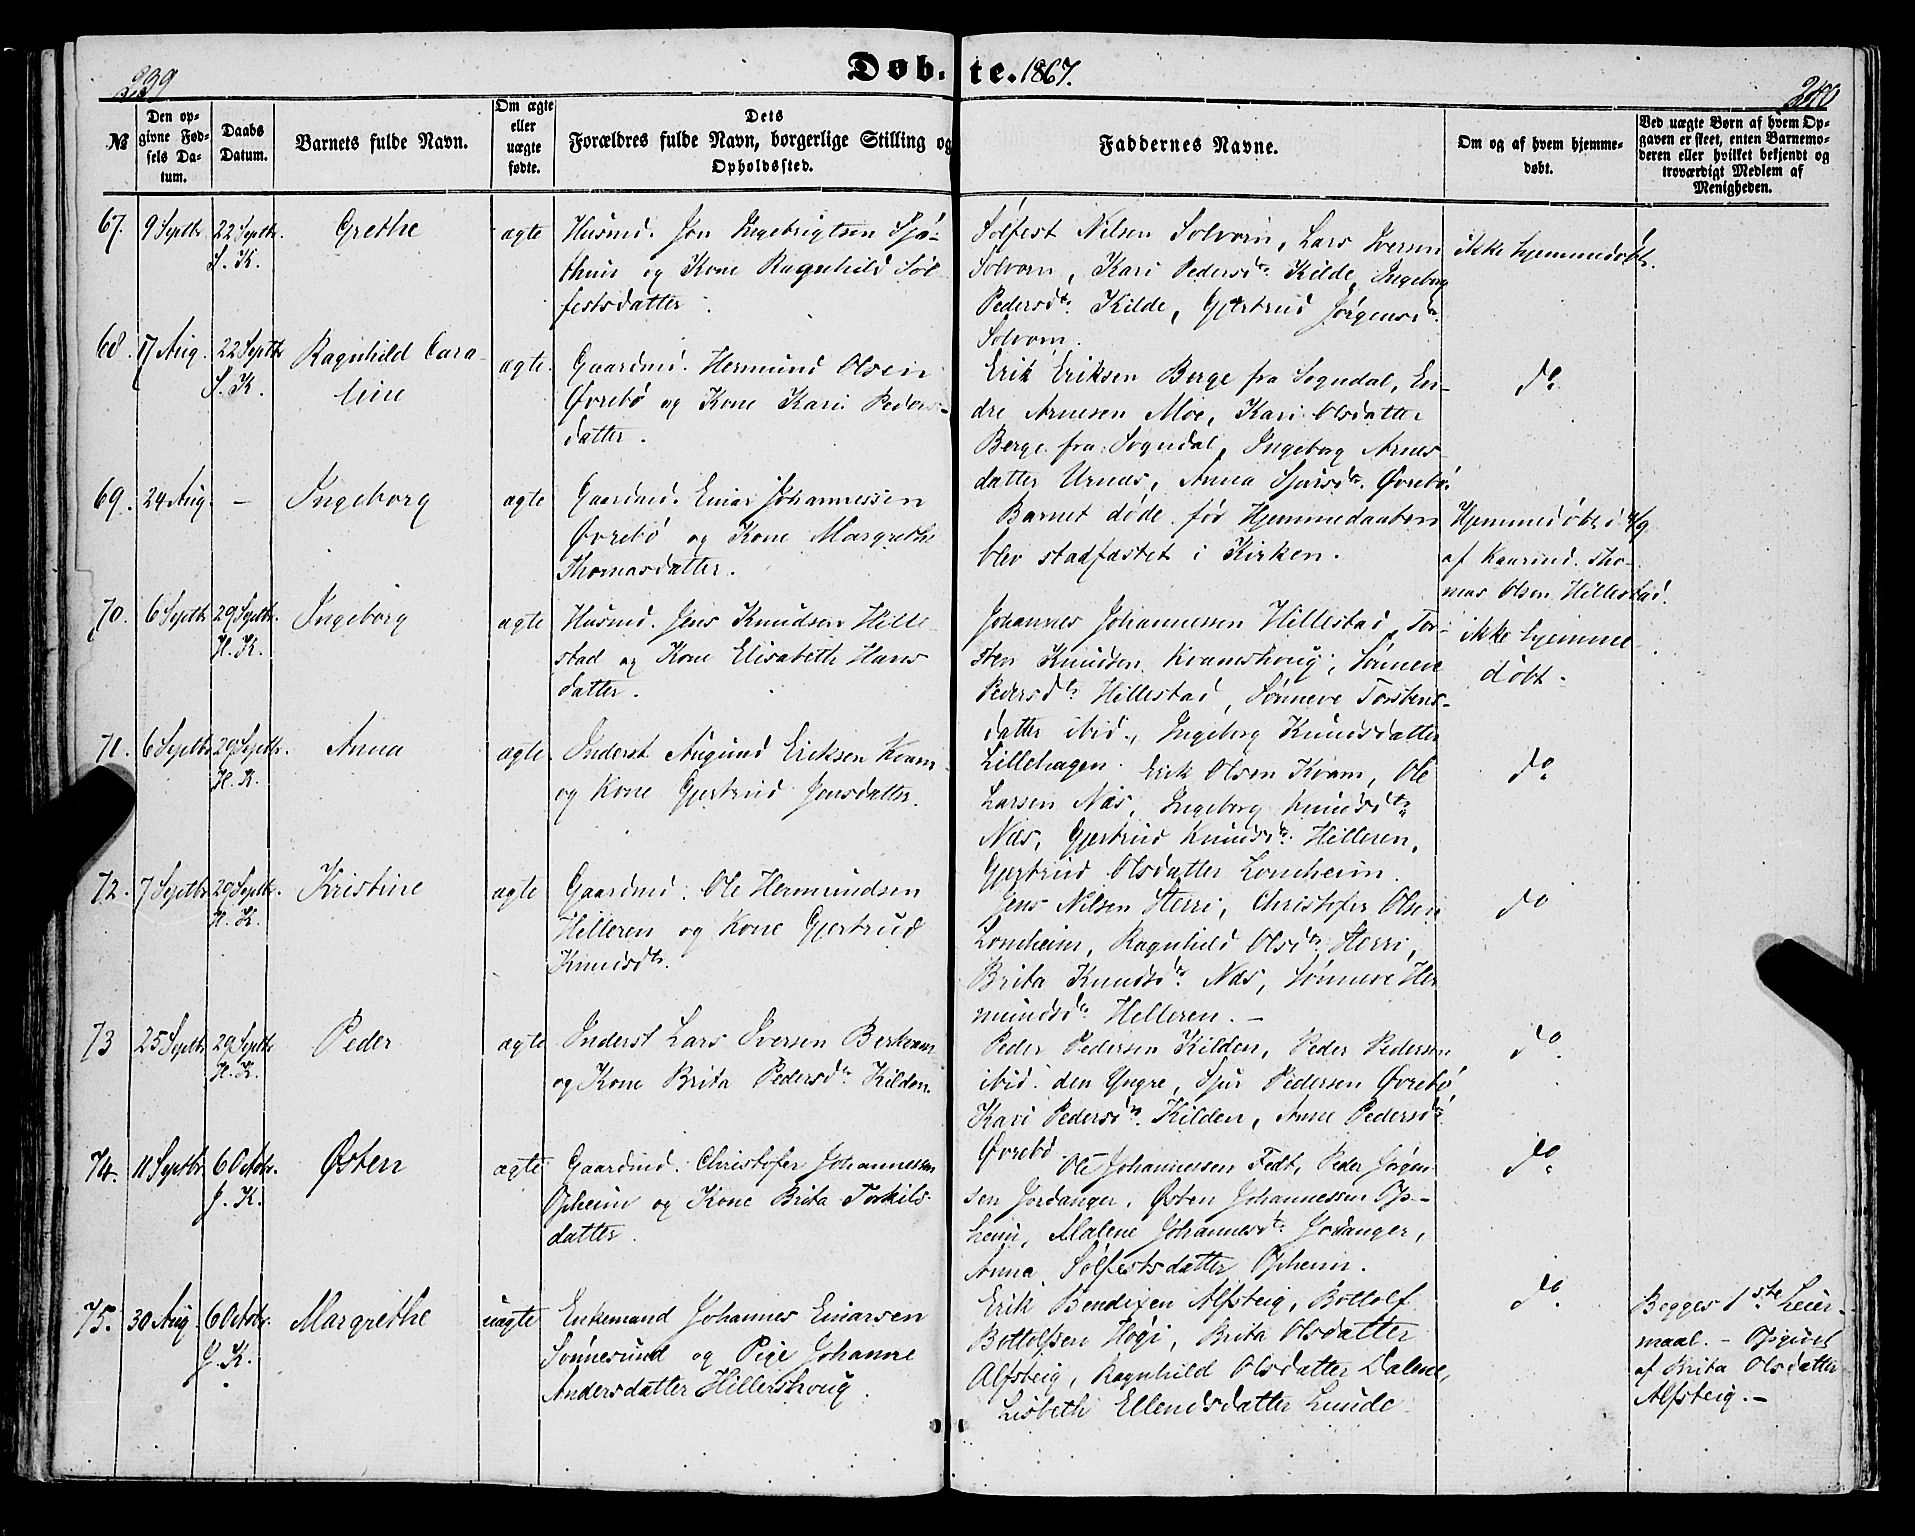 239
Døb-te. 1867.
240
№
Den op-
givne Fød-
sels Da-
tum.
Daabs
Datum.
Barnets fulde Navn.
Om ægte
eller
uægte
fødte.
Dets
Forældres fulde Navn, borgerlige Stilling og
Opholdssted.
Faddernes Navne.
Om og af hvem hjemme-
døbt.
Ved uægte Børn af hvem Op-
gaven er skeet, enten Barnemo-
deren eller hvilket bekjendt og
troværdigt Medlem af
Menigheden.
67. 9 Septbr 22 Septbr. Grethe ægte Husmd. Jon Ingebrigtsen Sjø-
S. K. thun og Kone Ragnhild Søl
festsdatter.
Sølfest Nilsen Solvorn, Lars Iversen
Solvorn, Kari Pedersdtr Kilde, Ingeborg
Pedersdtr. Kilde, Gjertrud Jørgensdtr.
Solvorn.
ikke hjemmedøbt.
68. 17 Aug. 22 Septbr Ragnhild Caro- ægte. Gaardmd. Hermund Olsen
S. K. line Øvrebø og Kone Kari Peders-
datter.
Erik Eriksen Berge fra Sogndal, En-
dre Arnesen Moe, Kari Olsdatter
Berge fra Sogndal, Ingeborg Arnes-
datter Urnes, Anna Sjursdtr. Øvrebø.
do
69. 24 Aug. - Ingeborg ægte Gaardmd. Einar Johannessen
Øvrebø og Kone Margrethe
Thomasdatter.
Barnet døde før Hjemmedaaben
blev stadfæstet i Kirken.
Hjemmedøbt
af Kaarmd. Tho-
mas Olsen Hillestad.
70. 6 Septbr 29 Septbr. Ingeborg ægte Husmd. Jens Knudsen Hille
H. K. stad og Kone Elisabeth Hans
datter.
Johannes Johannessen Hillestad, Tor-
sten Knudsen Kvamshoug, Sønneve
Pedersdtr Hillestad, Sønneve Torstens-
datter ibid., Ingeborg Knudsdatter
Lillehagen.
ikke hjemme-
døbt.
71. 6 Septbr 29 Septbr. Anna ægte. Inderst Augund Eriksen Kvam
H. K. og Kone Gjertrud Jonsdatter.
Erik Olsen Kvam, Ole
Larsen Næs, Ingeborg Knudsdtr
Næs, Gjertrud Knudsdtr. Hilleren,
Gjertrud Olsdatter Lomheim.
do
72. 7 Septbr 29 Septbr. Kristine ægte Gaardmd. Ole Hermundsen
H. K. Hilleren og Kone Gjertrud
Knudsdtr.
Jens Nilsen Herri, Christofer Olsen
Lomheim, Ragnhild Olsdtr Herri,
Brita Knudsdtr. Næs, Sønneve Her
mundsdtr Helleren. -
do
73 25 Septbr 29 Septbr. Peder ægte Inderst Lars Iversen Berkvam
H. K. og Kone Brita Pedersdtr. Kilden.
Peder Pedersen Kilden, Peder Pedersen
ibid. den Yngre, Sjur Pedersen Øvrebø
Kari Pedersdtr. Kilden, Anne Pedersdtr
Øvrebø
do.
74. 11 Septbr 6 Octobr. Østen ægte Gaardmd. Christofer Johannessen
J. K. Opheim og Kone Brita Torkils-
datter.
Ole Johannessen Fedt, Peder Jørgen
sen Jordanger, Østen Johannessen Op-
heim, Malene Johannesdtr. Jordanger,
Anna Sølfestsdatter Opheim.
do
75. 30 Aug. 6 Octobr. Margrethe uægte Enkemand Johannes Einarsen
J. K. Sønnesund og Pige Johanne
Andersdatter Hillershoug.
Erik Bendixen Alfsteig, Bottolf
Bottolfsen Høgi, Brita Olsdatter
Alfsteig, Ragnhild Olsdatter Dalene,
Lisbeth Ellendsdatter Lunde
do.
Begges 1ste Leier-
maal. - Opgivet
af Brita Olsdatter
Alfsteig. -